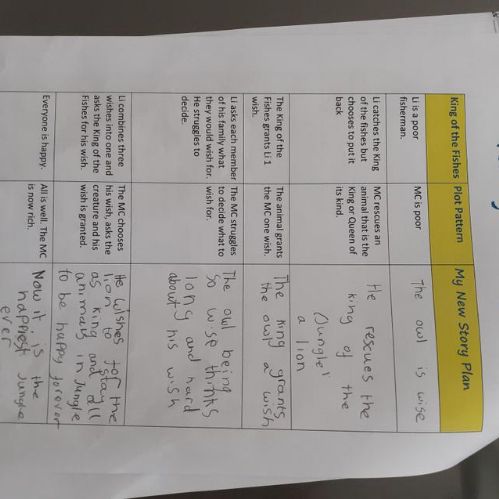 King of the Fishes
Plot Pattern
My New Story Plan
Li is a poor
fisherman.
MC is poor
The owl is wise
Li catches the King
of the fishes but
chooses to put it
back
MC rescues an
animal that is the
King or Queen of
its kind.
He rescues the
king of the
Jungle
a lion
The King of the
Fishes grants Li 1
wish.
The animal grants
the MC one wish.
The king grants
the owl a wish
Li asks each member
of his family what
they would wish for.
He struggles to
decide.
The MC struggles
to decide what to
wish for.
The owl being
so wise thinks
long and hard
about his wish
Li combines three
wishes into one and
asks the King of the
Fishes for his wish.
The MC chooses
his wish, asks the
creature and his
wish is granted.
He wishes for the
lion to stay
as king and all
animals in Jungle
to be happy forever
Everyone is happy.
All is well. The MC
is now rich.
Now it is the
happiest Jungle
ever